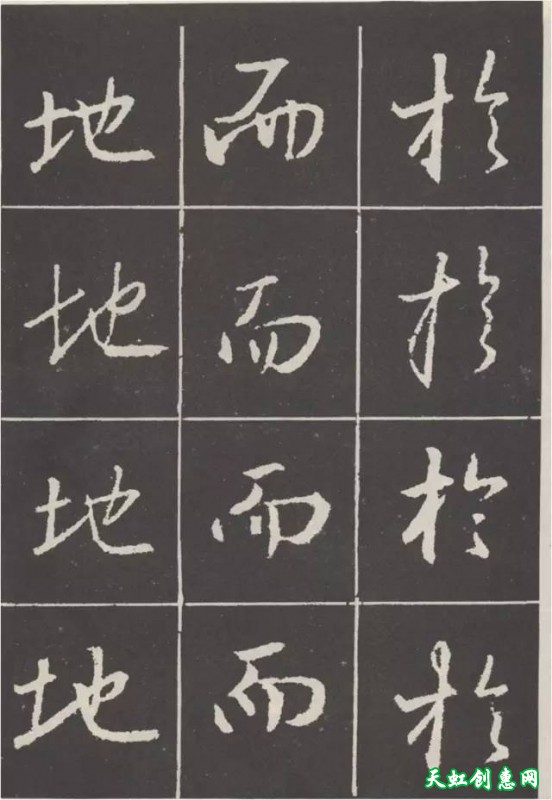 於於於於
而而而而
地地地地
天虹创惠网